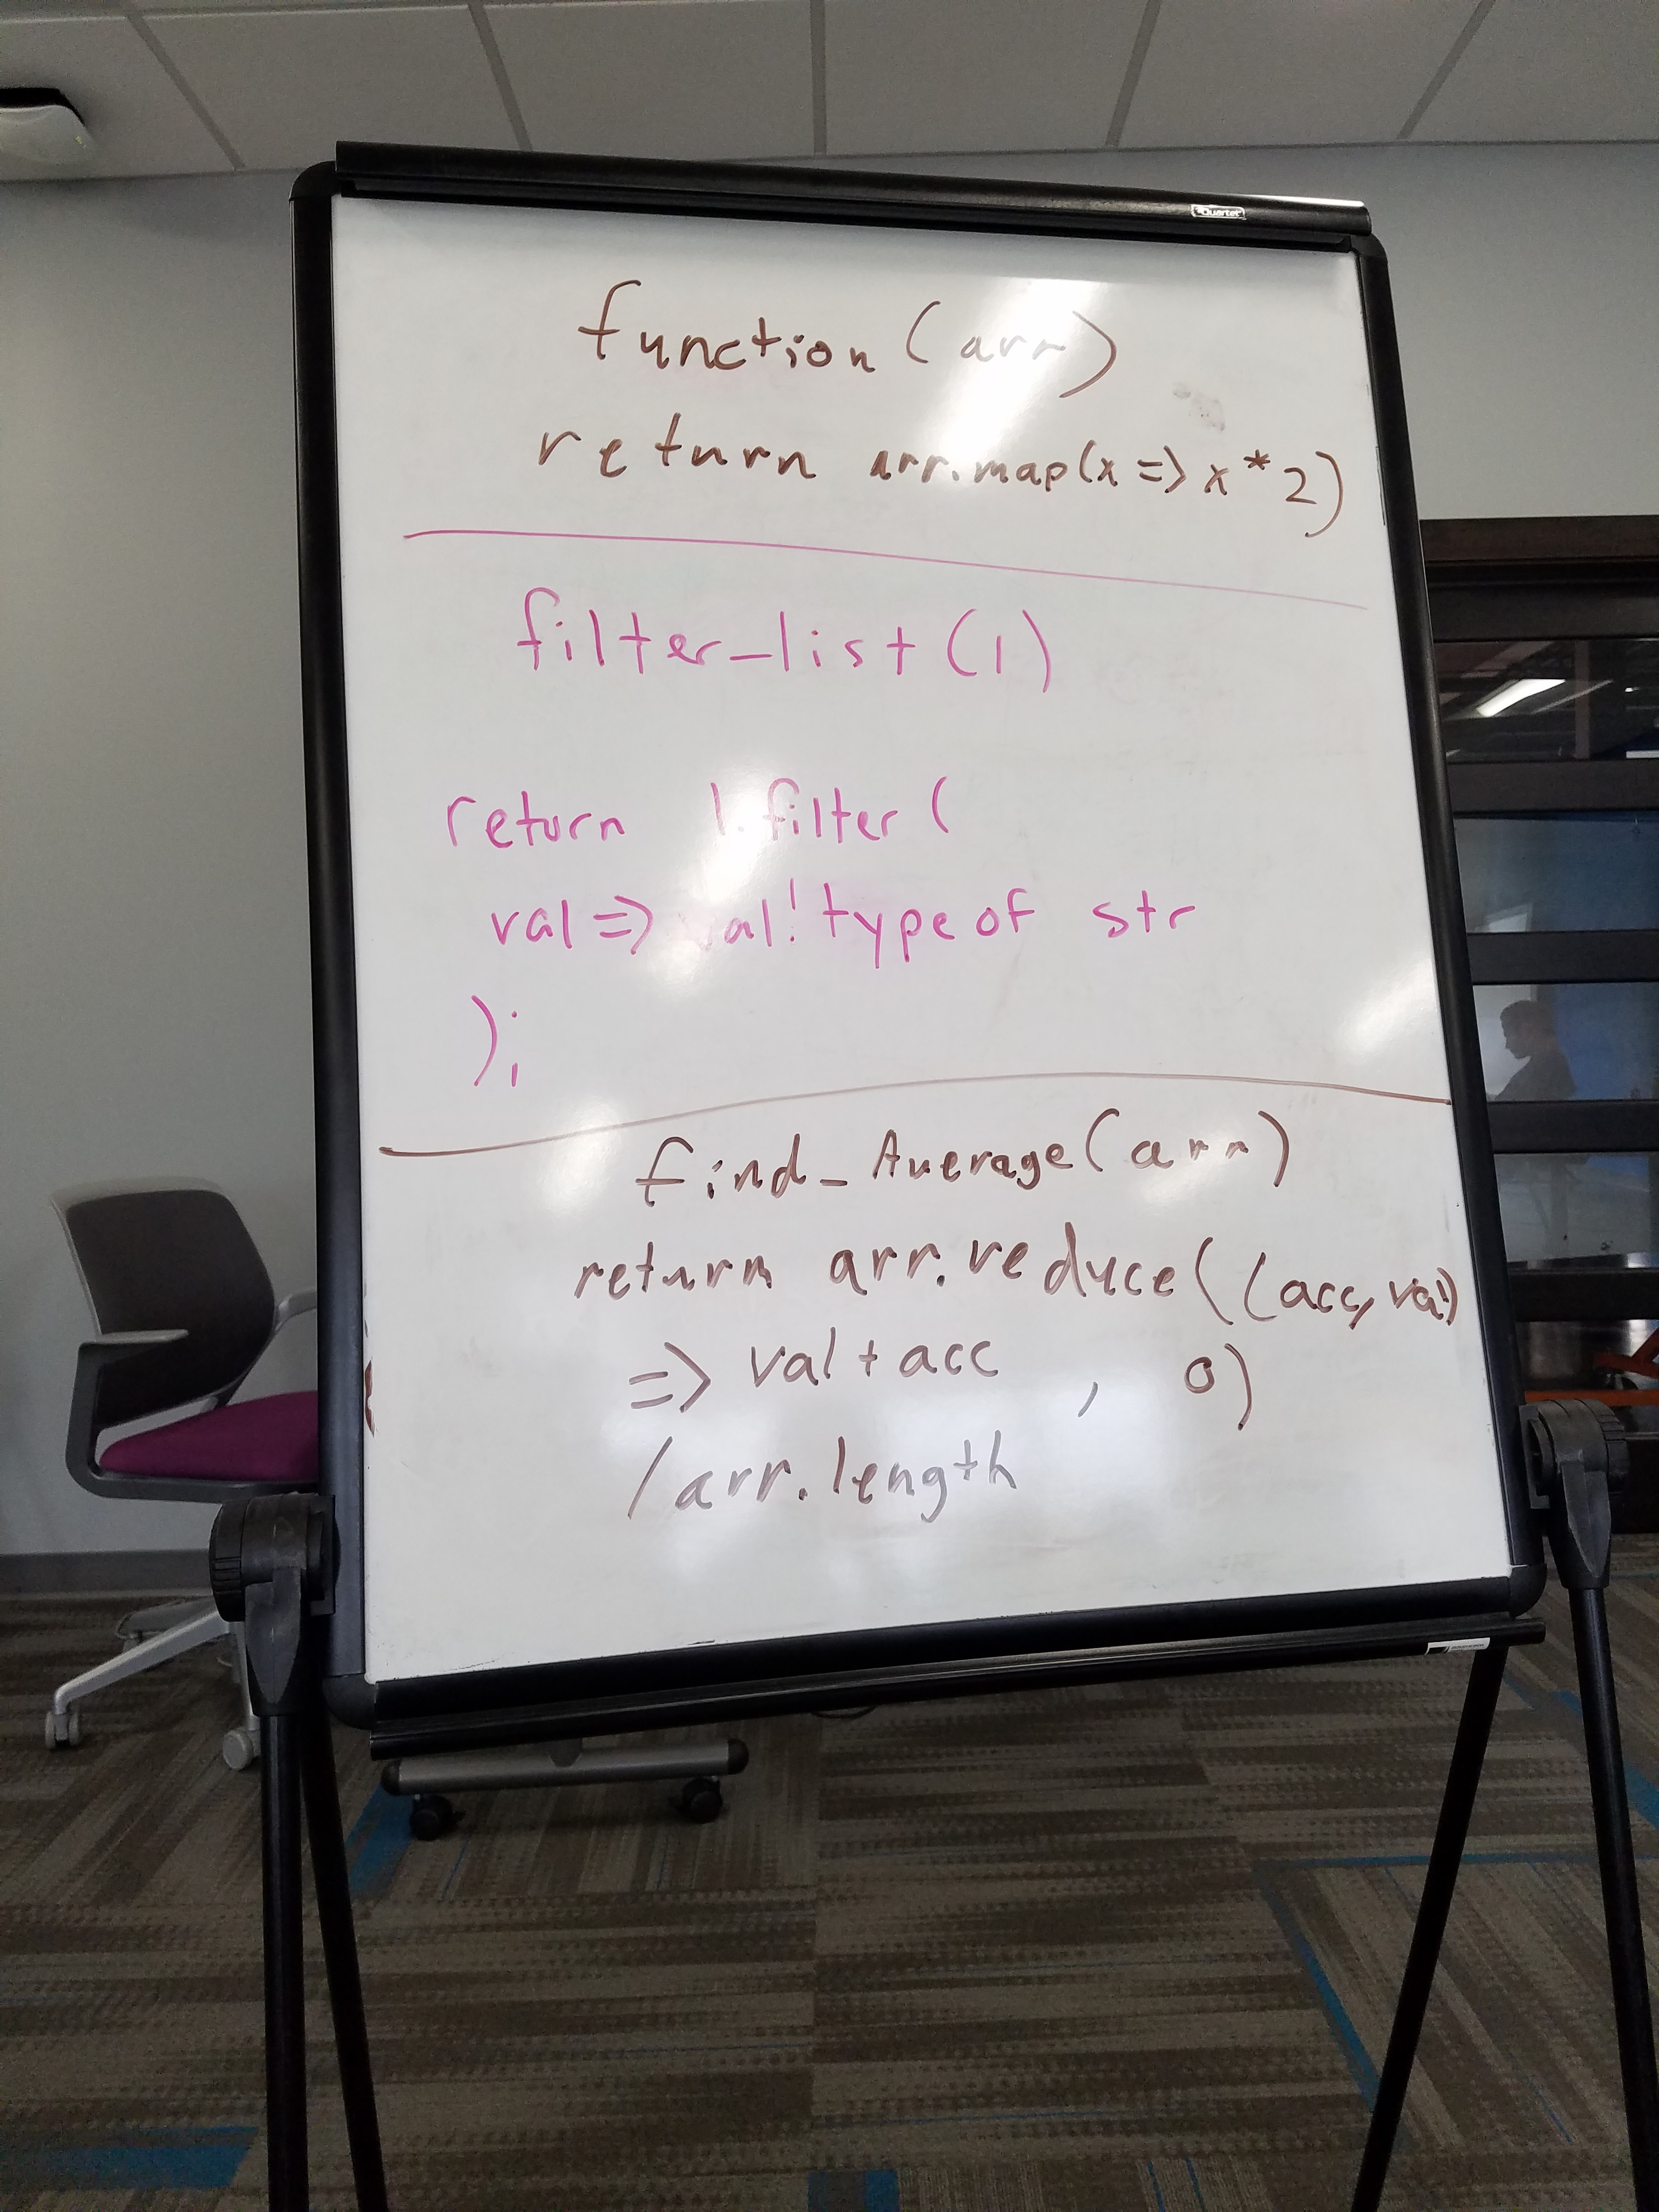 Quartet
function (arr)
return arr.map(x => x * 2)
filter_list (l)
return l.filter (
val => val! typeof str
);
find_Average (arr)
return arr.reduce( (acc, val)
=> val + acc , 0)
/arr.length